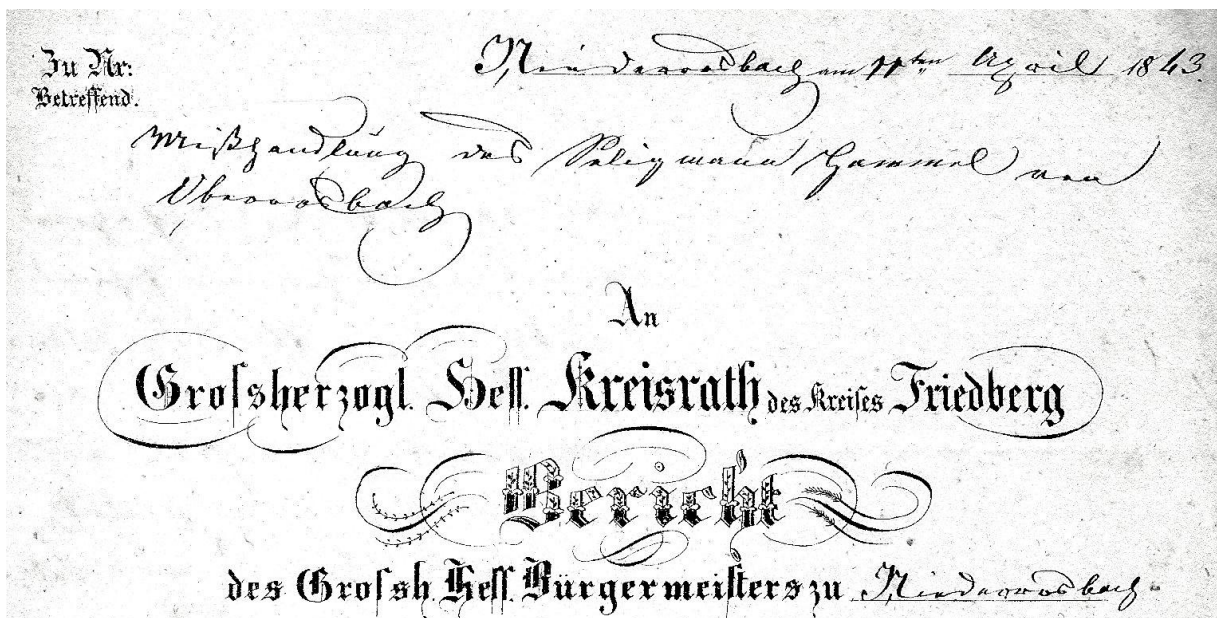 Zu Nr:
Niederrosbach am 11ten April 1843
Betreffend.
Mißhandlung des Seligmann Hammel von
Oberrosbach
An
Grossherzogl. Hess. Kreisrath des Kreises Friedberg
Bericht
des Grossh Hess. Bürgermeisters zu Niederrosbach